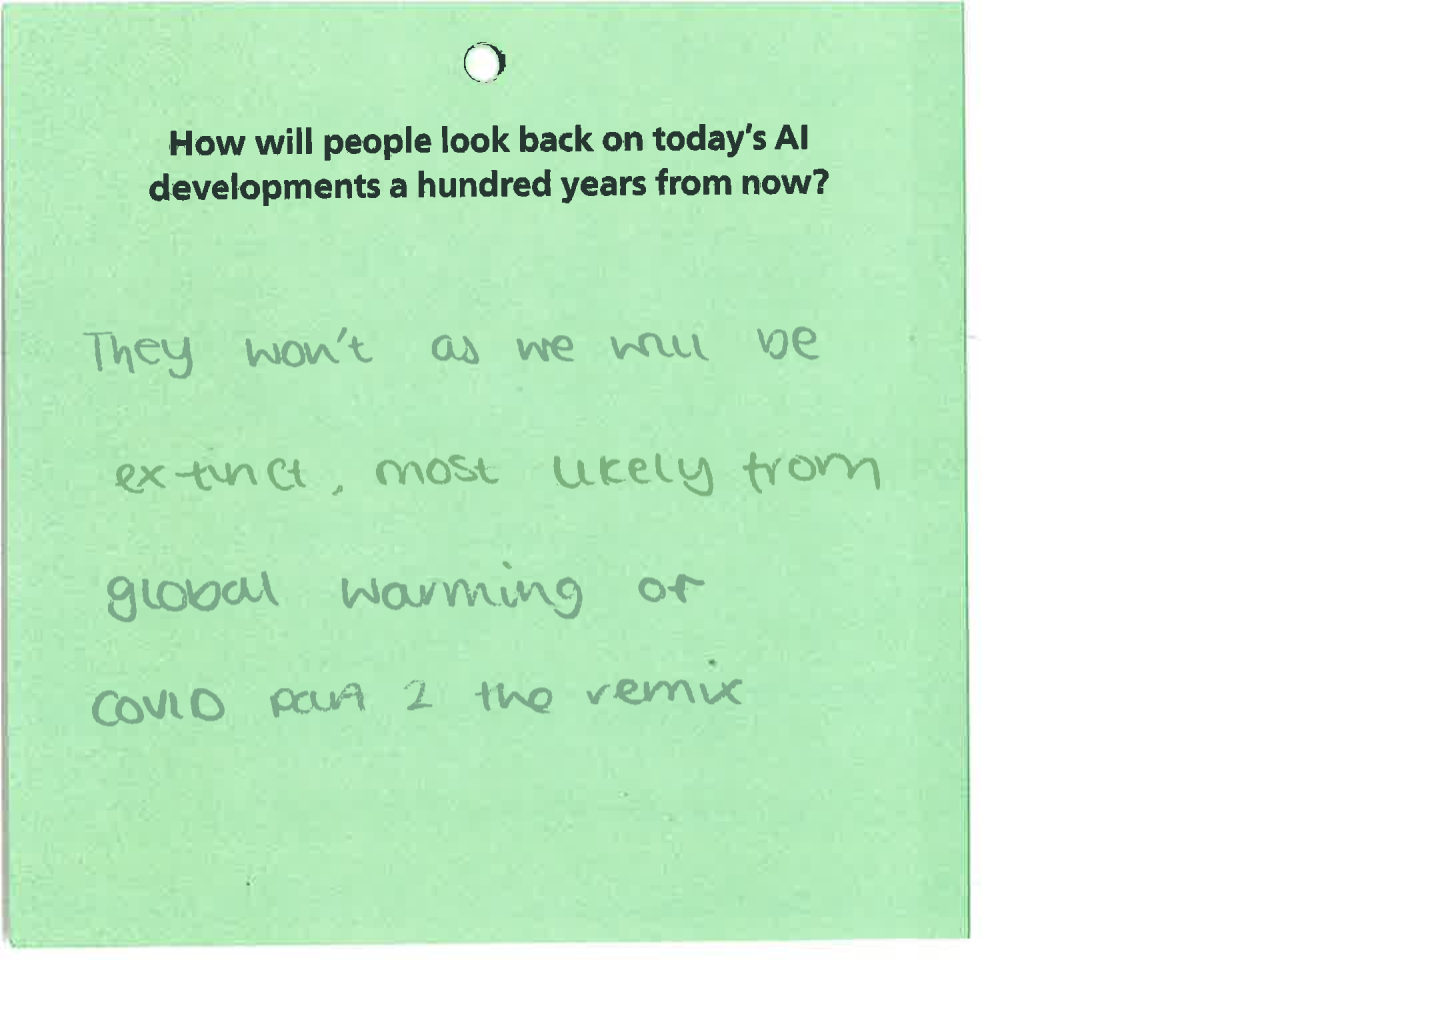 How will people look back on today's AI
developments a hundred years from now?
They won't as we will be
extinct, most likely from
global warming or
COVID part 2 the remix